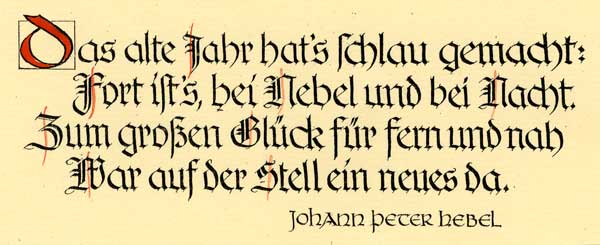 Das alte Jahr hat's ſchlau gemacht:
Fort iſt's, hei Nebel und bei Nacht.
Zum großen Glück für fern und nah
War auf der Stell ein neues da.
Johann Peter Hebel